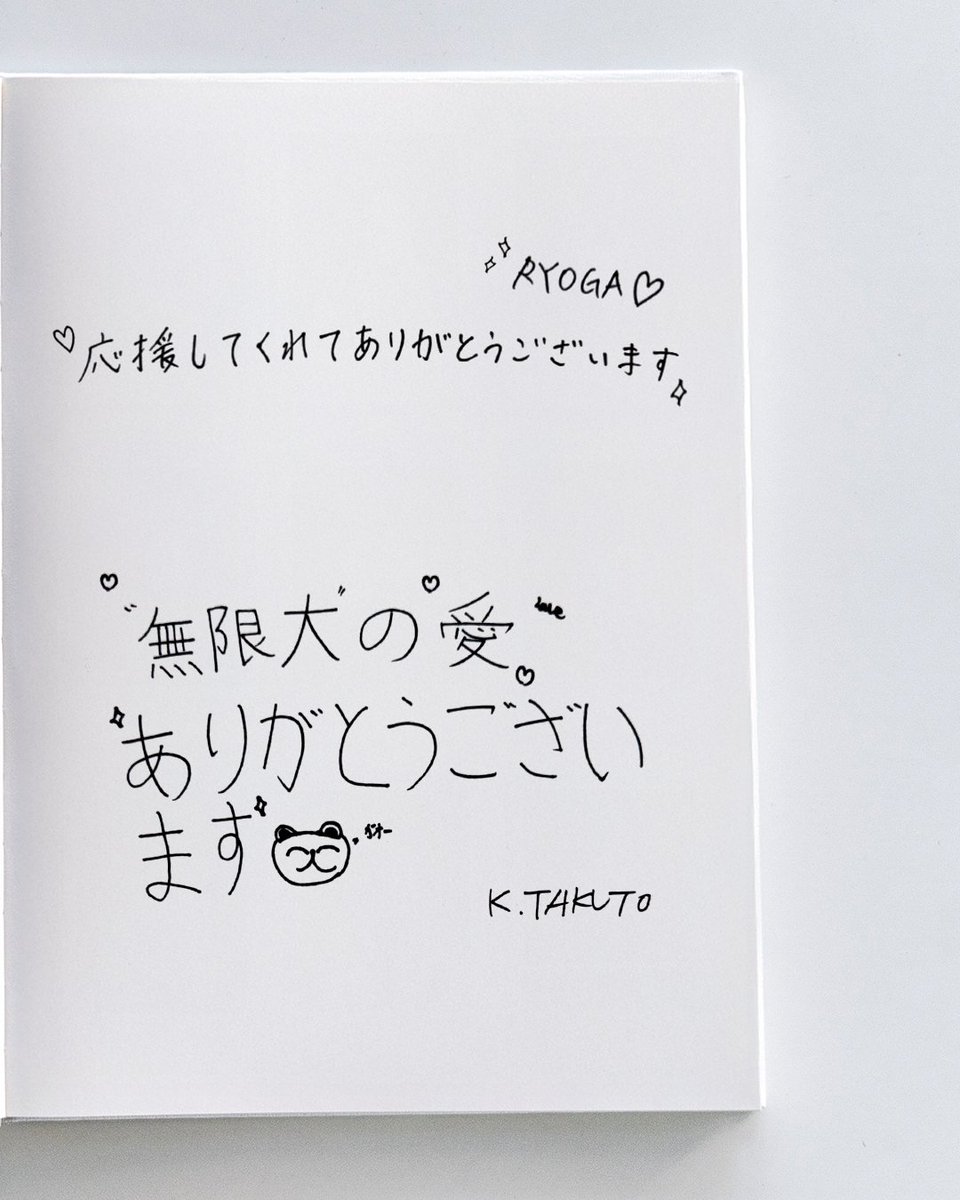 RYOGA♡
応援してくれてありがとうございます
"無限大"の愛
love
ありがとうござい
ます
K.TAKUTO